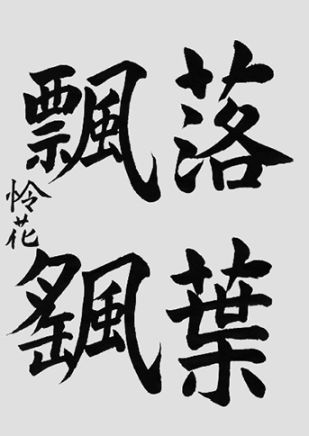 落葉
飄颻
怜花